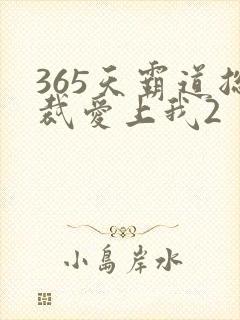 365天霸道总
裁爱上我2
小岛岸水